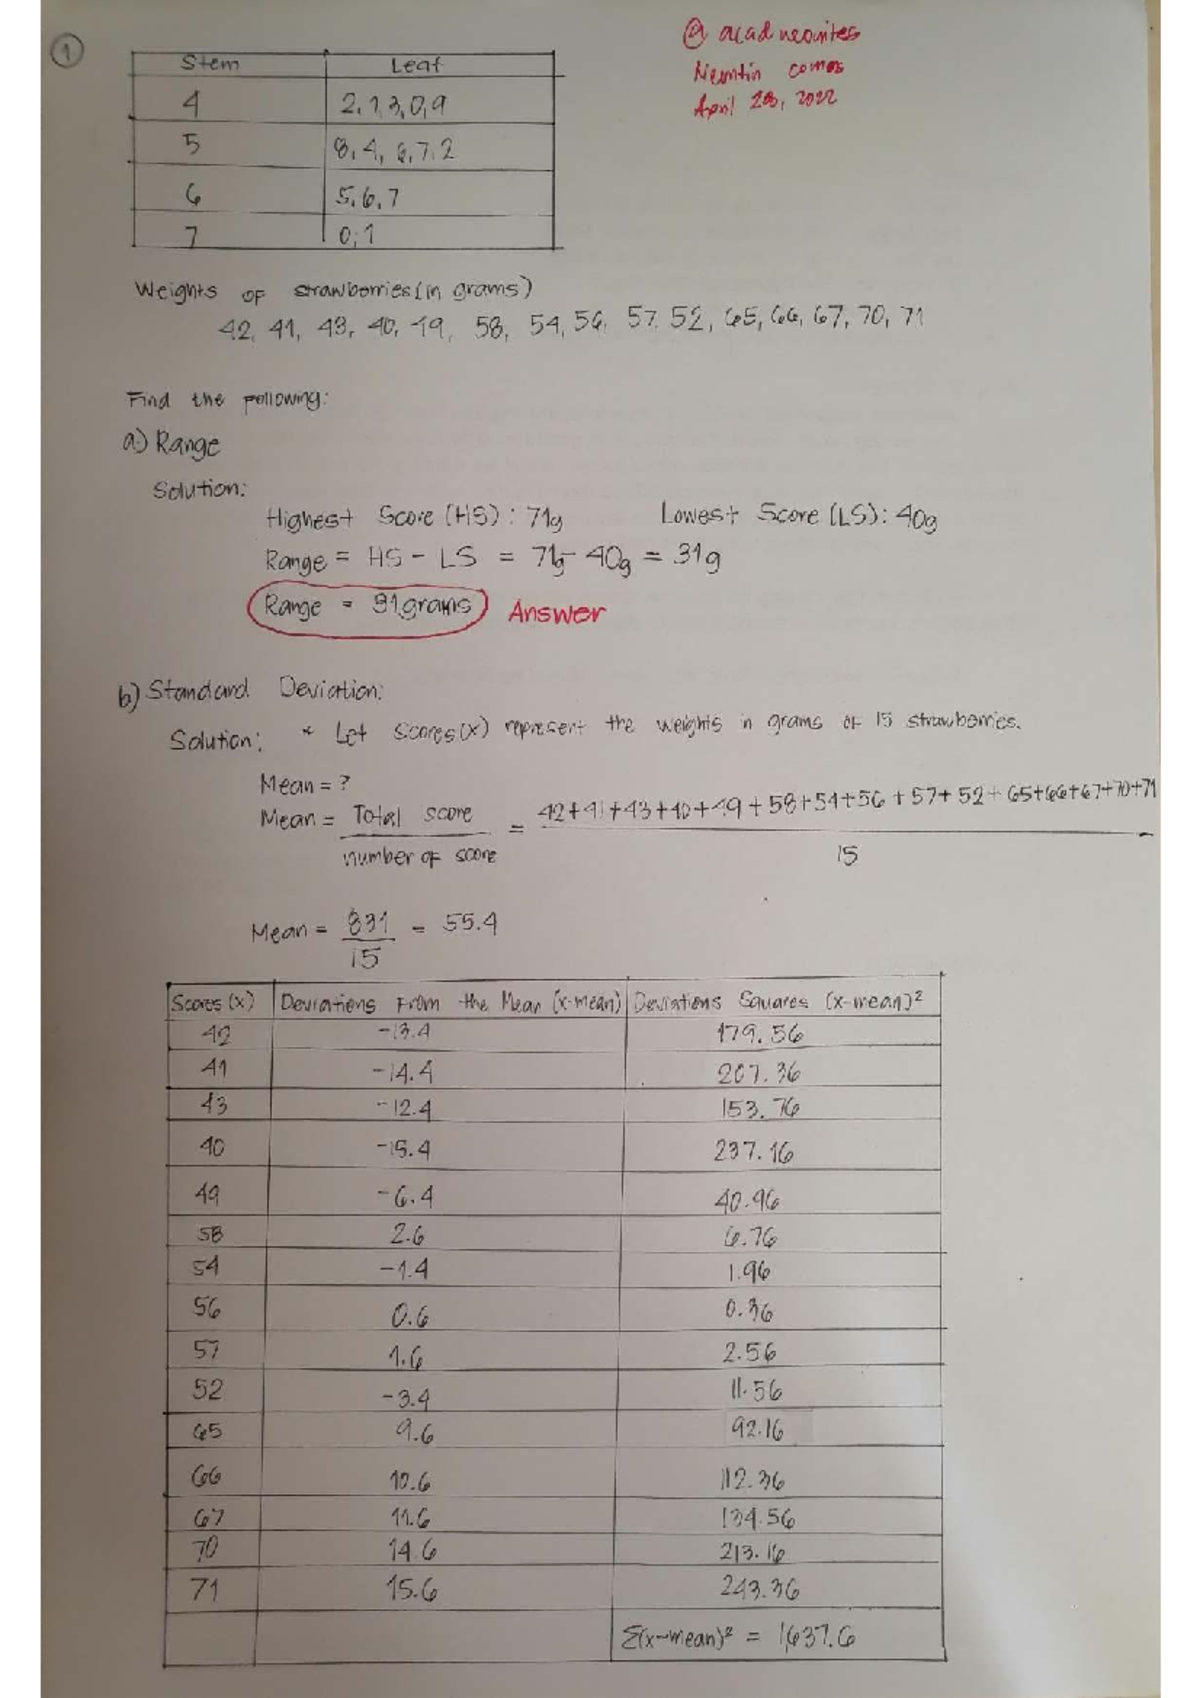 1
@ acad neonites
Stem Leaf
4 2, 1, 3, 0, 9
April 28, 2022
5 8, 4, 6, 7, 2
6 5, 6, 7
7 0, 1
Weights of strawberries (in grams)
42, 41, 43, 40, 49, 58, 54, 56, 57, 52, 65, 66, 67, 70, 71
Find the following:
a) Range
Solution:
Highest Score (HS) : 71g Lowest Score (LS): 40g
Range = HS - LS = 71g - 40g = 31g
Range = 31 grams Answer
b) Standard Deviation:
Solution: * Let Scores (x) represent the weights in grams of 15 strawberries.
Mean = ?
Mean = Total score = 42+41+43+40+49+58+54+56+57+52+65+66+67+70+71
number of score 15
Mean = 831 = 55.4
15
Scores (x) Deviations From the Mean (x-mean) Deviations Squares (x-mean)²
42 -13.4 179.56
41 -14.4 207.36
43 -12.4 153.76
40 -15.4 237.16
49 -6.4 40.96
58 2.6 6.76
54 -1.4 1.96
56 0.6 0.36
57 1.6 2.56
52 -3.4 11.56
65 9.6 92.16
66 10.6 112.36
67 11.6 134.56
70 14.6 213.16
71 15.6 243.36
Σ(x-mean)² = 1,637.6